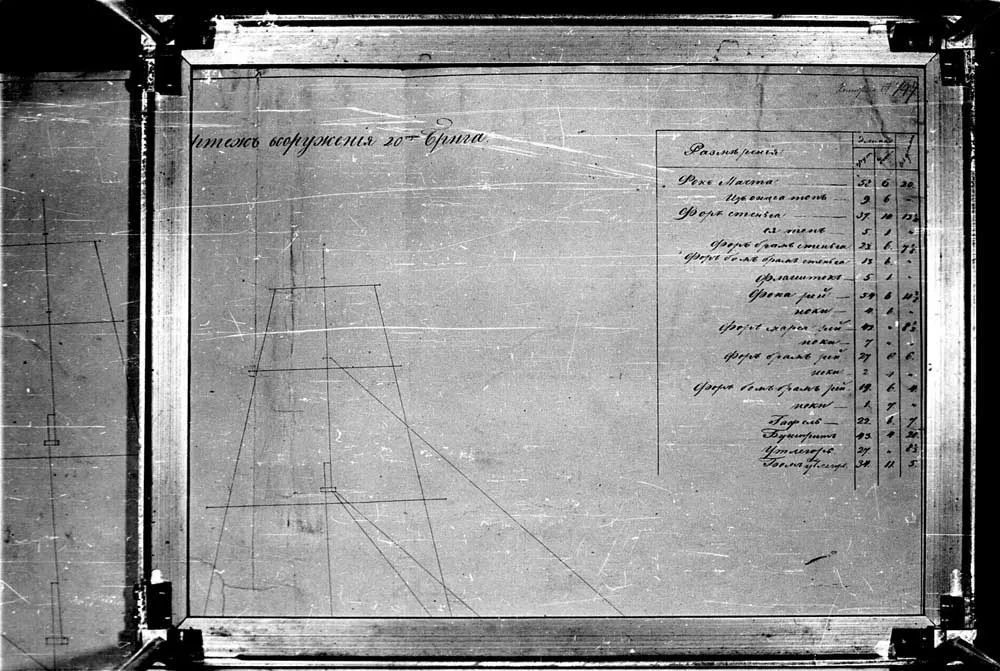 ртежъ вооруженія 20 Брига.
199
Размѣренія
Длина
Фокъ Мачта 52 6 20
Изъ онаго топъ 9 6
Форъ стеньга 37 10
ея топъ 5 1 „
Форъ брамъ стеньга 23 6 7½
Форъ бомъ брамъ стеньга 13 6 „
Флагштокъ 5 1 „
Фока рей 54 6
ноки 4 6 „
Форъ марса рей 42 „ 8½
ноки 7 „ „
Форъ брамъ рей 27 6 6
ноки 2 1 „
Форъ бомъ брамъ рей 19 6 4
ноки 1 7 „
Гафель 22 6 7
Бушпритъ 43 4 20
Утлегарь 27 „ 8½
34 11 5